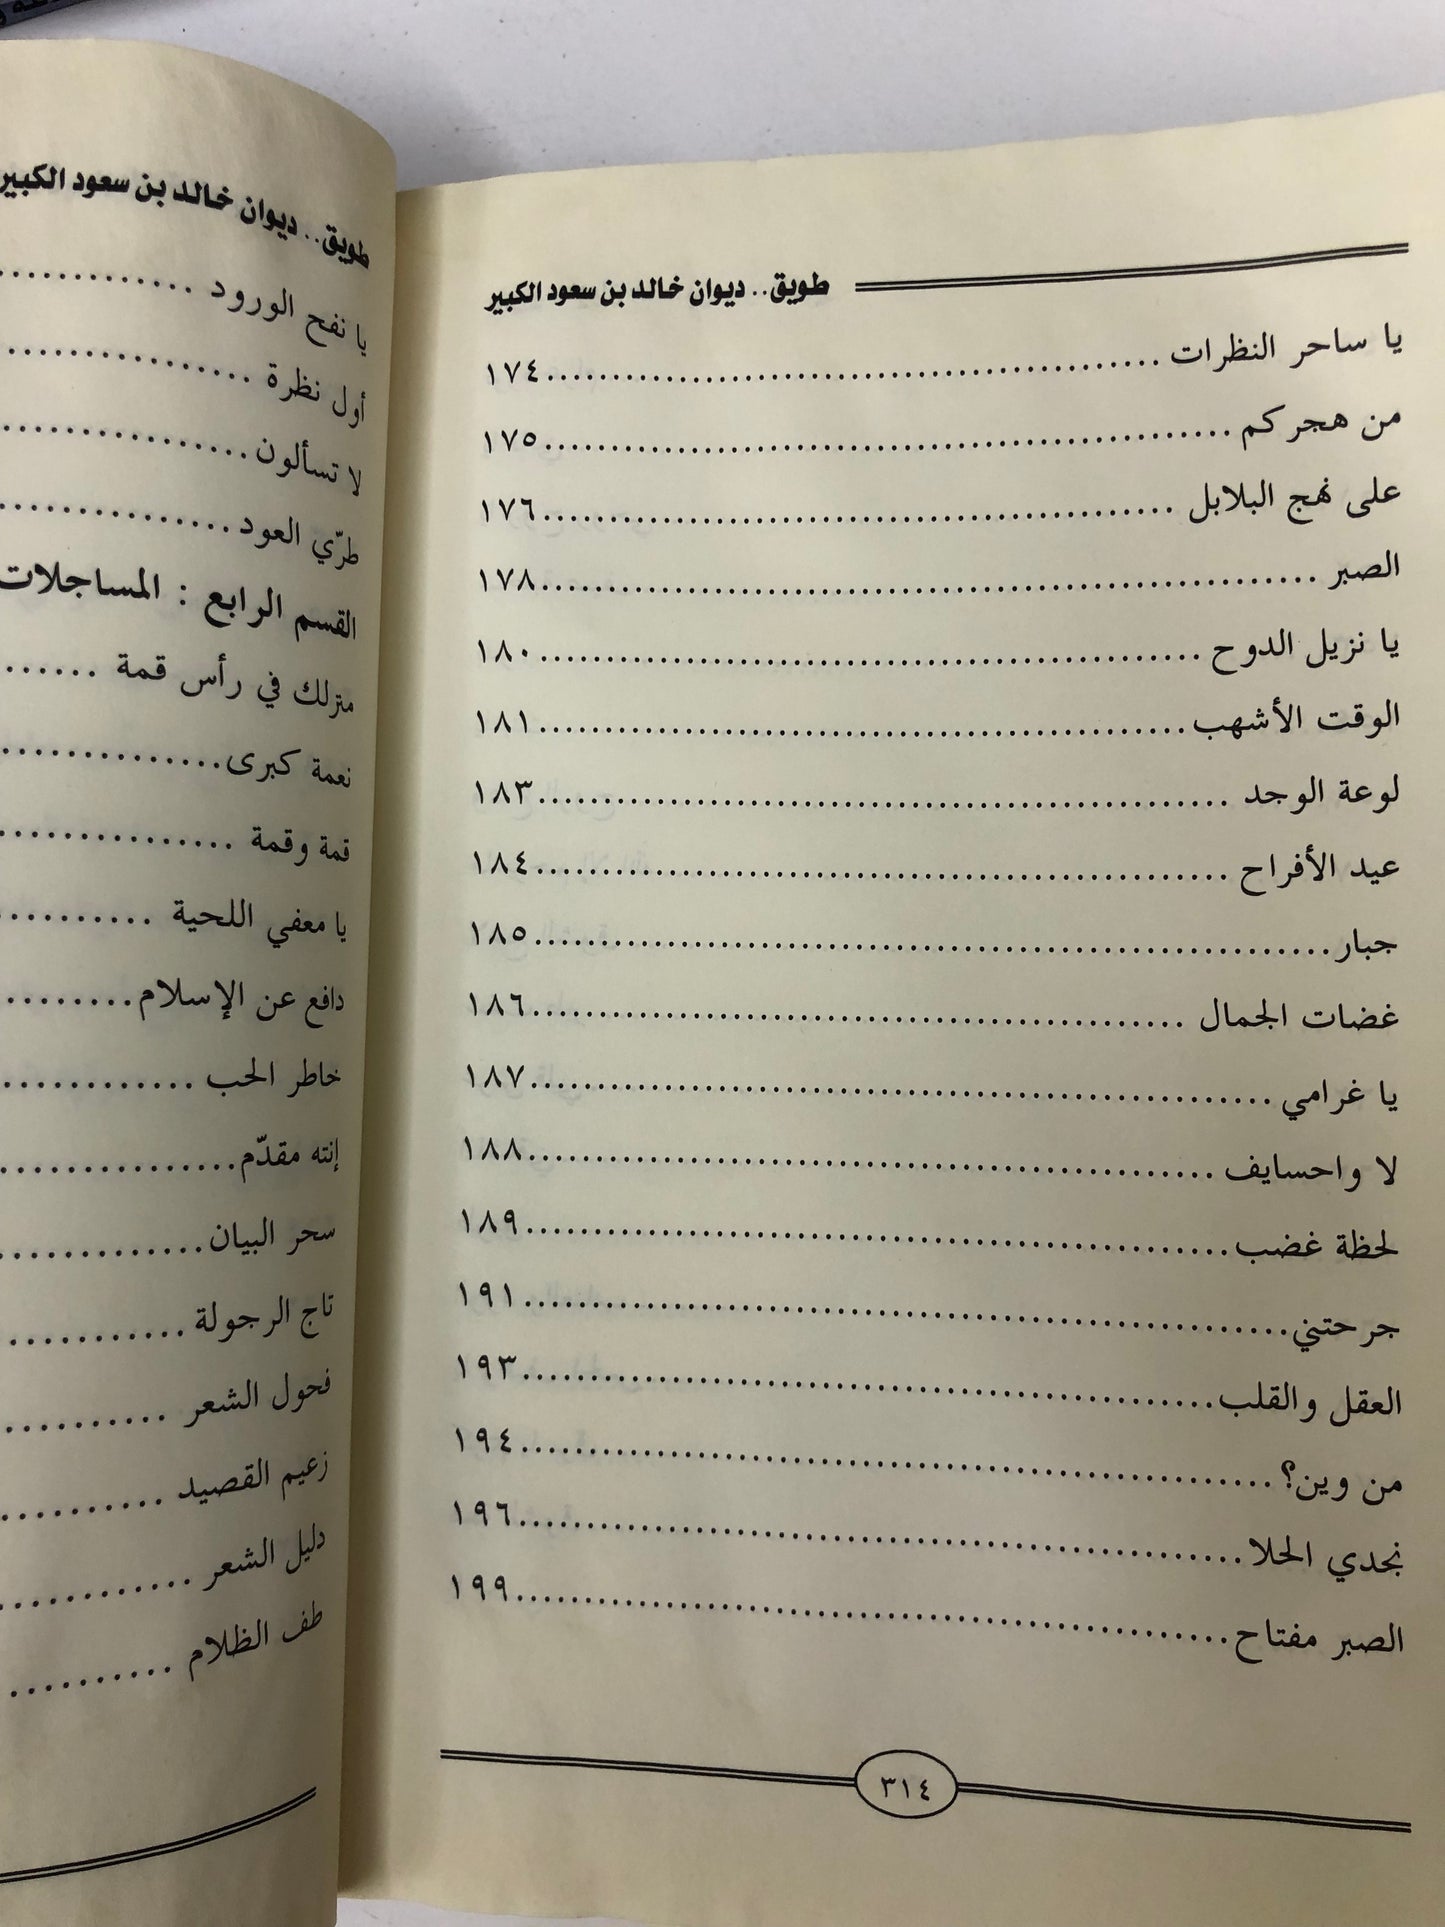 طويق.. ديوان خالد بن سعود الكبير
يا ساحر النظرات ........................................ ١٧٤
من هجركم ........................................ ١٧٥
على نهج البلابل ........................................ ١٧٦
الصبر ........................................ ١٧٨
يا نزيل الدوح ........................................ ١٨٠
الوقت الأشهب ........................................ ١٨١
لوعة الوجد ........................................ ١٨٣
عيد الأفراح ........................................ ١٨٤
جبار ........................................ ١٨٥
غضات الجمال ........................................ ١٨٦
يا غرامي ........................................ ١٨٧
لا واحسايف ........................................ ١٨٨
لحظة غضب ........................................ ١٨٩
جرحتني ........................................ ١٩١
العقل والقلب ........................................ ١٩٣
من وين؟ ........................................ ١٩٤
نجدي الحلا ........................................ ١٩٦
الصبر مفتاح ........................................ ١٩٩
٣١٤
طويق.. ديوان خالد بن سعود الكبير
يا نفح الورود .............
أول نظرة ................
لا تسألون ................
طرّي العود ...............
القسم الرابع : المساجلات
منزلك في رأس قمة ......
نعمة كبرى ..............
قمة وقمة ...............
يا معفي اللحية ..........
دافع عن الإسلام .........
خاطر الحب .............
إنته مقدّم ................
سحر البيان ..............
تاج الرجولة ............
فحول الشعر ...........
زعيم القصيد ...........
دليل الشعر ............
طف الظلام ..........